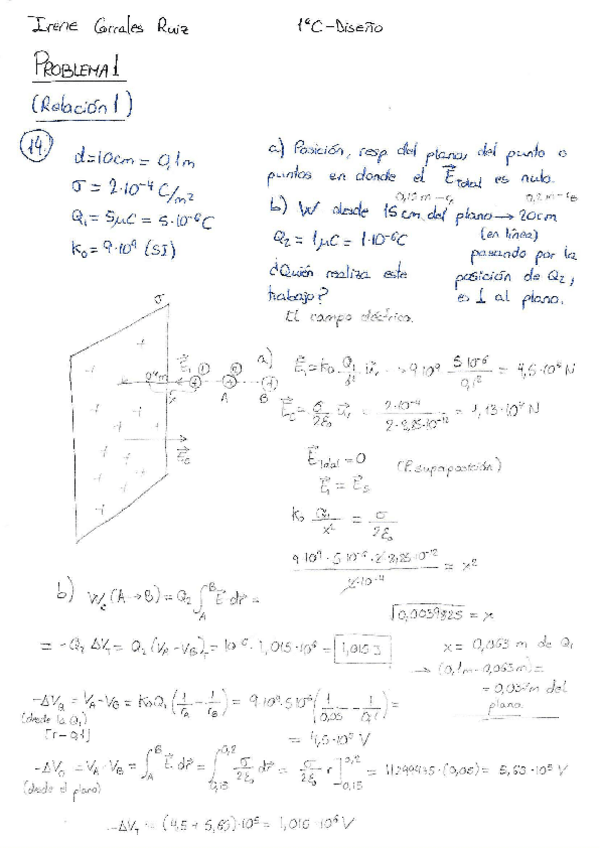 Irene Corrales Ruiz 1ºC-Diseño
PROBLEMA 1
(Relación 1)
14.
d=10cm = 0,1m
σ = 2·10⁻⁴ C/m²
Q₁ = 5μC = 5·10⁻⁶C
K₀ = 9·10⁹ (SI)
a) Posición, resp. del plano, del punto o
puntos en donde el E⃗Total es nulo.
b) W desde 15cm del plano → 20cm
(en línea)
Q₂ = 1μC = 1·10⁻⁶C pasando por la
¿Quién realiza este posición de Q₂,
trabajo? es ⊥ al plano.
El campo eléctrico.
σ
E⃗₁
A B
a) E⃗₁ = K₀ Q₁/d² u⃗r → 9·10⁹ · 5·10⁻⁶/0,1² = 4,5·10⁶ N
E⃗σ = σ/2ε₀ u⃗r = 2·10⁻⁴/2·8,85·10⁻¹² = 1,13·10⁷ N
E⃗Total = 0 (P. superposición)
E⃗₁ = E⃗σ
K₀ Q₁/x² = σ/2ε₀
9·10⁹·5·10⁻⁶·2·8,85·10⁻¹²/2·10⁻⁴ = x²
√0,0039825 = x
x = 0,063 m de Q₁
→ (0,1m - 0,063m) =
= 0,037m del
plano.
b) We(A→B) = Q₂ ∫ᴀᴮ E⃗ dr⃗ =
= -Q₂ ΔVT = Q₂ (VA - VB)T = 10⁻⁶ · 1,015·10⁶ = 1,015 J
-ΔVQ = VA - VB = K₀Q₁ (1/rA - 1/rB) = 9·10⁹·5·10⁻⁶ (1/0,05 - 1/0,1) =
(desde la Q₁)
[r-0,1]
= 4,5·10⁵ V
-ΔVσ = VA - VB = ∫ᴀᴮ E⃗ dr⃗ = ∫0,15 0,2 σ/2ε₀ dr⃗ = σ/2ε₀ r]0,15 0,2 = 11299435·(0,05) = 5,65·10⁵ V
(desde el plano)
-ΔVT = (4,5 + 5,65)·10⁵ = 1,015·10⁶ V